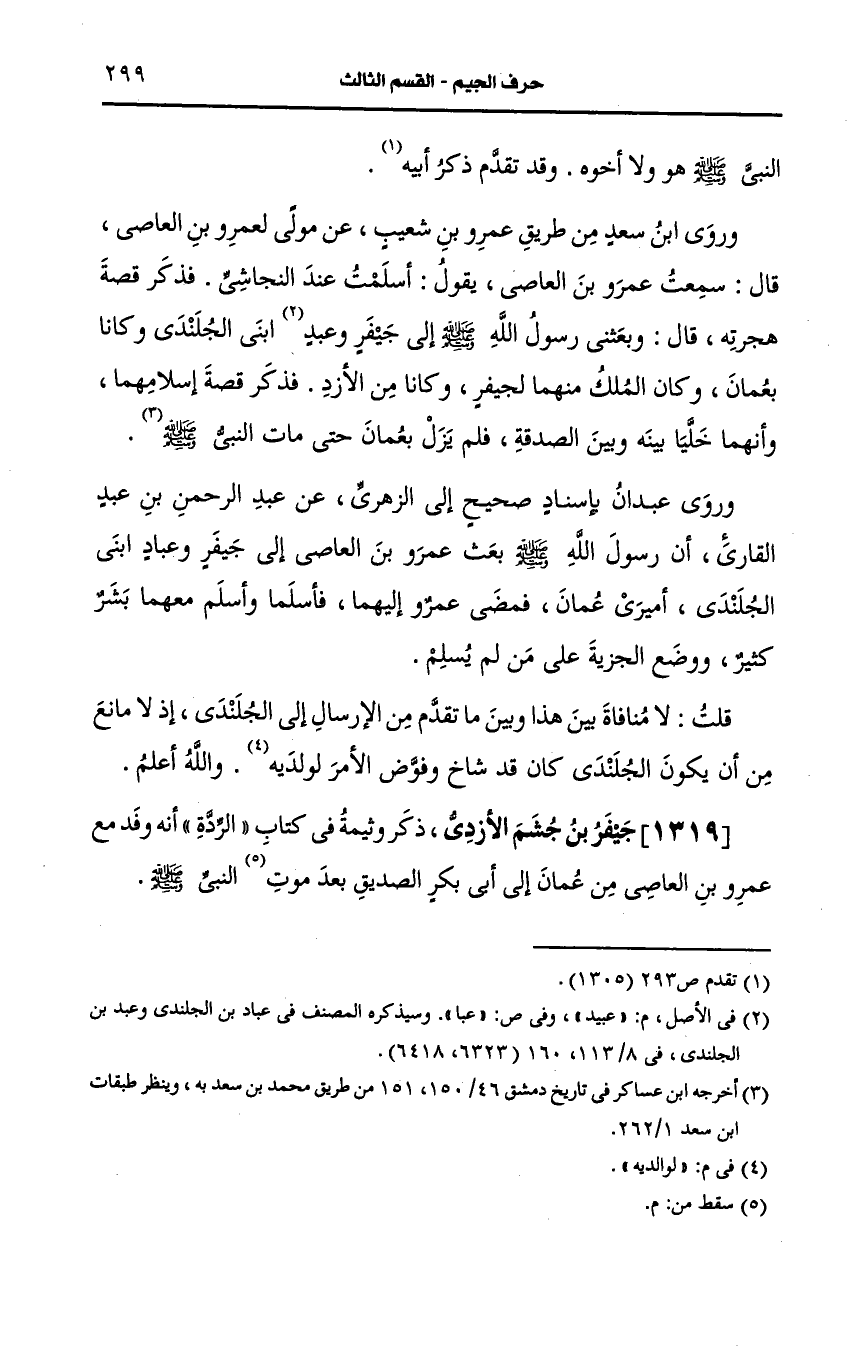 حرف الجيم - القسم الثالث ٢٩٩
النبىَّ ﷺ هو ولا أخوه . وقد تقدَّم ذكرُ أبيه(١) .
وروَى ابنُ سعدٍ مِن طريقِ عمرِو بنِ شعيبٍ ، عن مولًى لعمرِو بنِ العاصى ،
قال : سمِعتُ عمرَو بنَ العاصى ، يقولُ : أسلَمْتُ عندَ النجاشِىِّ . فذكَر قصةَ
هجرتِه ، قال : وبعَثنى رسولُ اللَّهِ ﷺ إلى جَيْفَرٍ وعبدٍ(٢) ابنَى الجُلَنْدَى وكانا
بعُمانَ ، وكان المُلكُ منهما لجيفرٍ ، وكانا مِن الأزدِ . فذكَر قصةَ إسلامِهما ،
وأنهما خَلَّيَا بينَه وبينَ الصدقةِ ، فلم يَزَلْ بعُمانَ حتى مات النبىُّ ﷺ(٣) .
وروَى عبدانُ بإسنادٍ صحيحٍ إلى الزهرىِّ ، عن عبدِ الرحمنِ بنِ عبدٍ
القارىِّ ، أن رسولَ اللَّهِ ﷺ بعَث عمرَو بنَ العاصى إلى جَيفَرٍ وعبادٍ ابنَى
الجُلَنْدَى ، أميرَىْ عُمانَ ، فمضَى عمرٌو إليهما ، فأسلَما وأسلَم معهما بَشَرٌ
كثيرٌ ، ووضَع الجزيةَ على مَن لم يُسلِمْ .
قلتُ : لا مُنافاةَ بينَ هذا وبينَ ما تقدَّم مِن الإرسالِ إلى الجُلَنْدَى ، إذ لا مانعَ
مِن أن يكونَ الجُلَنْدَى كان قد شاخ وفوَّض الأمرَ لولدَيه(٤) . واللَّهُ أعلمُ .
[١٣١٩] جَيْفَرُ بنُ جُشَمَ الأزدِىُّ ، ذكَر وثيمةُ فى كتابِ « الرِّدَّةِ » أنه وفَد مع
عمرِو بنِ العاصِى مِن عُمانَ إلى أبى بكرٍ الصديقِ بعدَ موتِ(٥) النبىِّ ﷺ .
(١) تقدم ص٢٩٣ (١٣٠٥) .
(٢) فى الأصل ، م: « عبيد » ، وفى ص: « عبا ». وسيذكره المصنف فى عباد بن الجلندى وعبد بن
الجلندى ، فى ٨/ ١١٣، ١٦٠ (٦٣٢٣، ٦٤١٨) .
(٣) أخرجه ابن عساكر فى تاريخ دمشق ٤٦/ ١٥٠، ١٥١ من طريق محمد بن سعد به ، وينظر طبقات
ابن سعد ١/ ٢٦٢.
(٤) فى م: « لوالديه » .
(٥) سقط من: م.